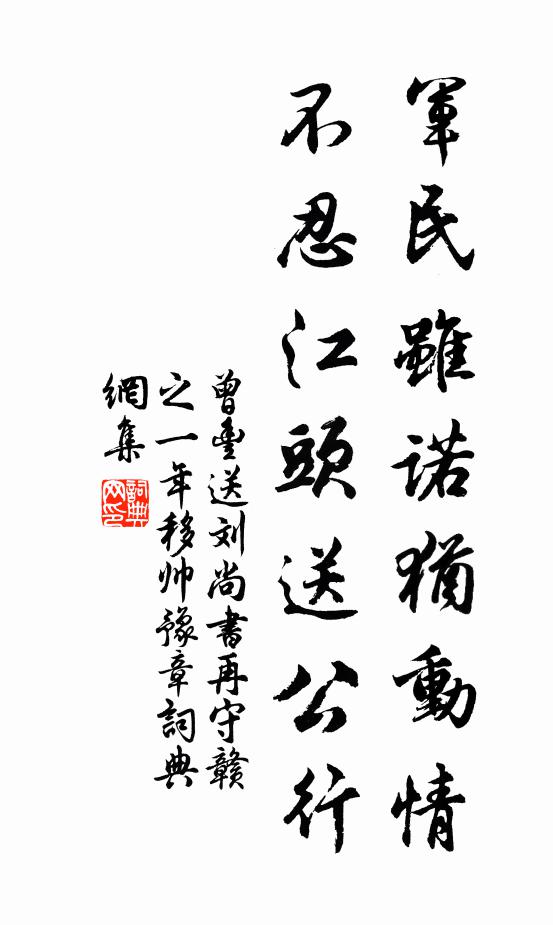 軍民雖諾猶動情
不忍江頭送公行
曾豊送刘尚書再守贛
之一年移帅豫章詞典
網集
詞典網印